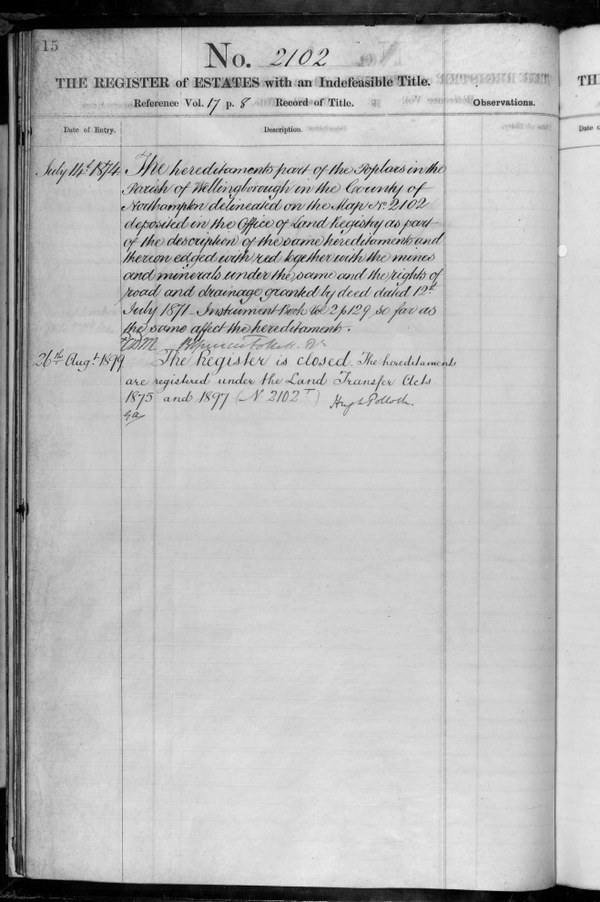 15
No. 2102
THE REGISTER of ESTATES with an Indefeasible Title.
Reference Vol. 17 p. 8 Record of Title.
Observations.
Date of Entry.
Description.
July 14th 1874
The hereditaments part of the Poplars in the
Parish of Wellingborough in the County of
Northampton delineated on the Map No. 2102
deposited in the Office of Land Registry as part
of the description of the same hereditament and
thereon edged with red together with the mines
and minerals under the same and the rights of
road and drainage granted by deed dated 12th
July 1871 - Instrument Book 2 p 129 so far as
the same affect the hereditament.
26th Augt 1899
The Register is closed. The hereditaments
are registered under the Land Transfer Acts
1875 and 1897 (No 2102 T) Hugh Pollock.
TH
Date o